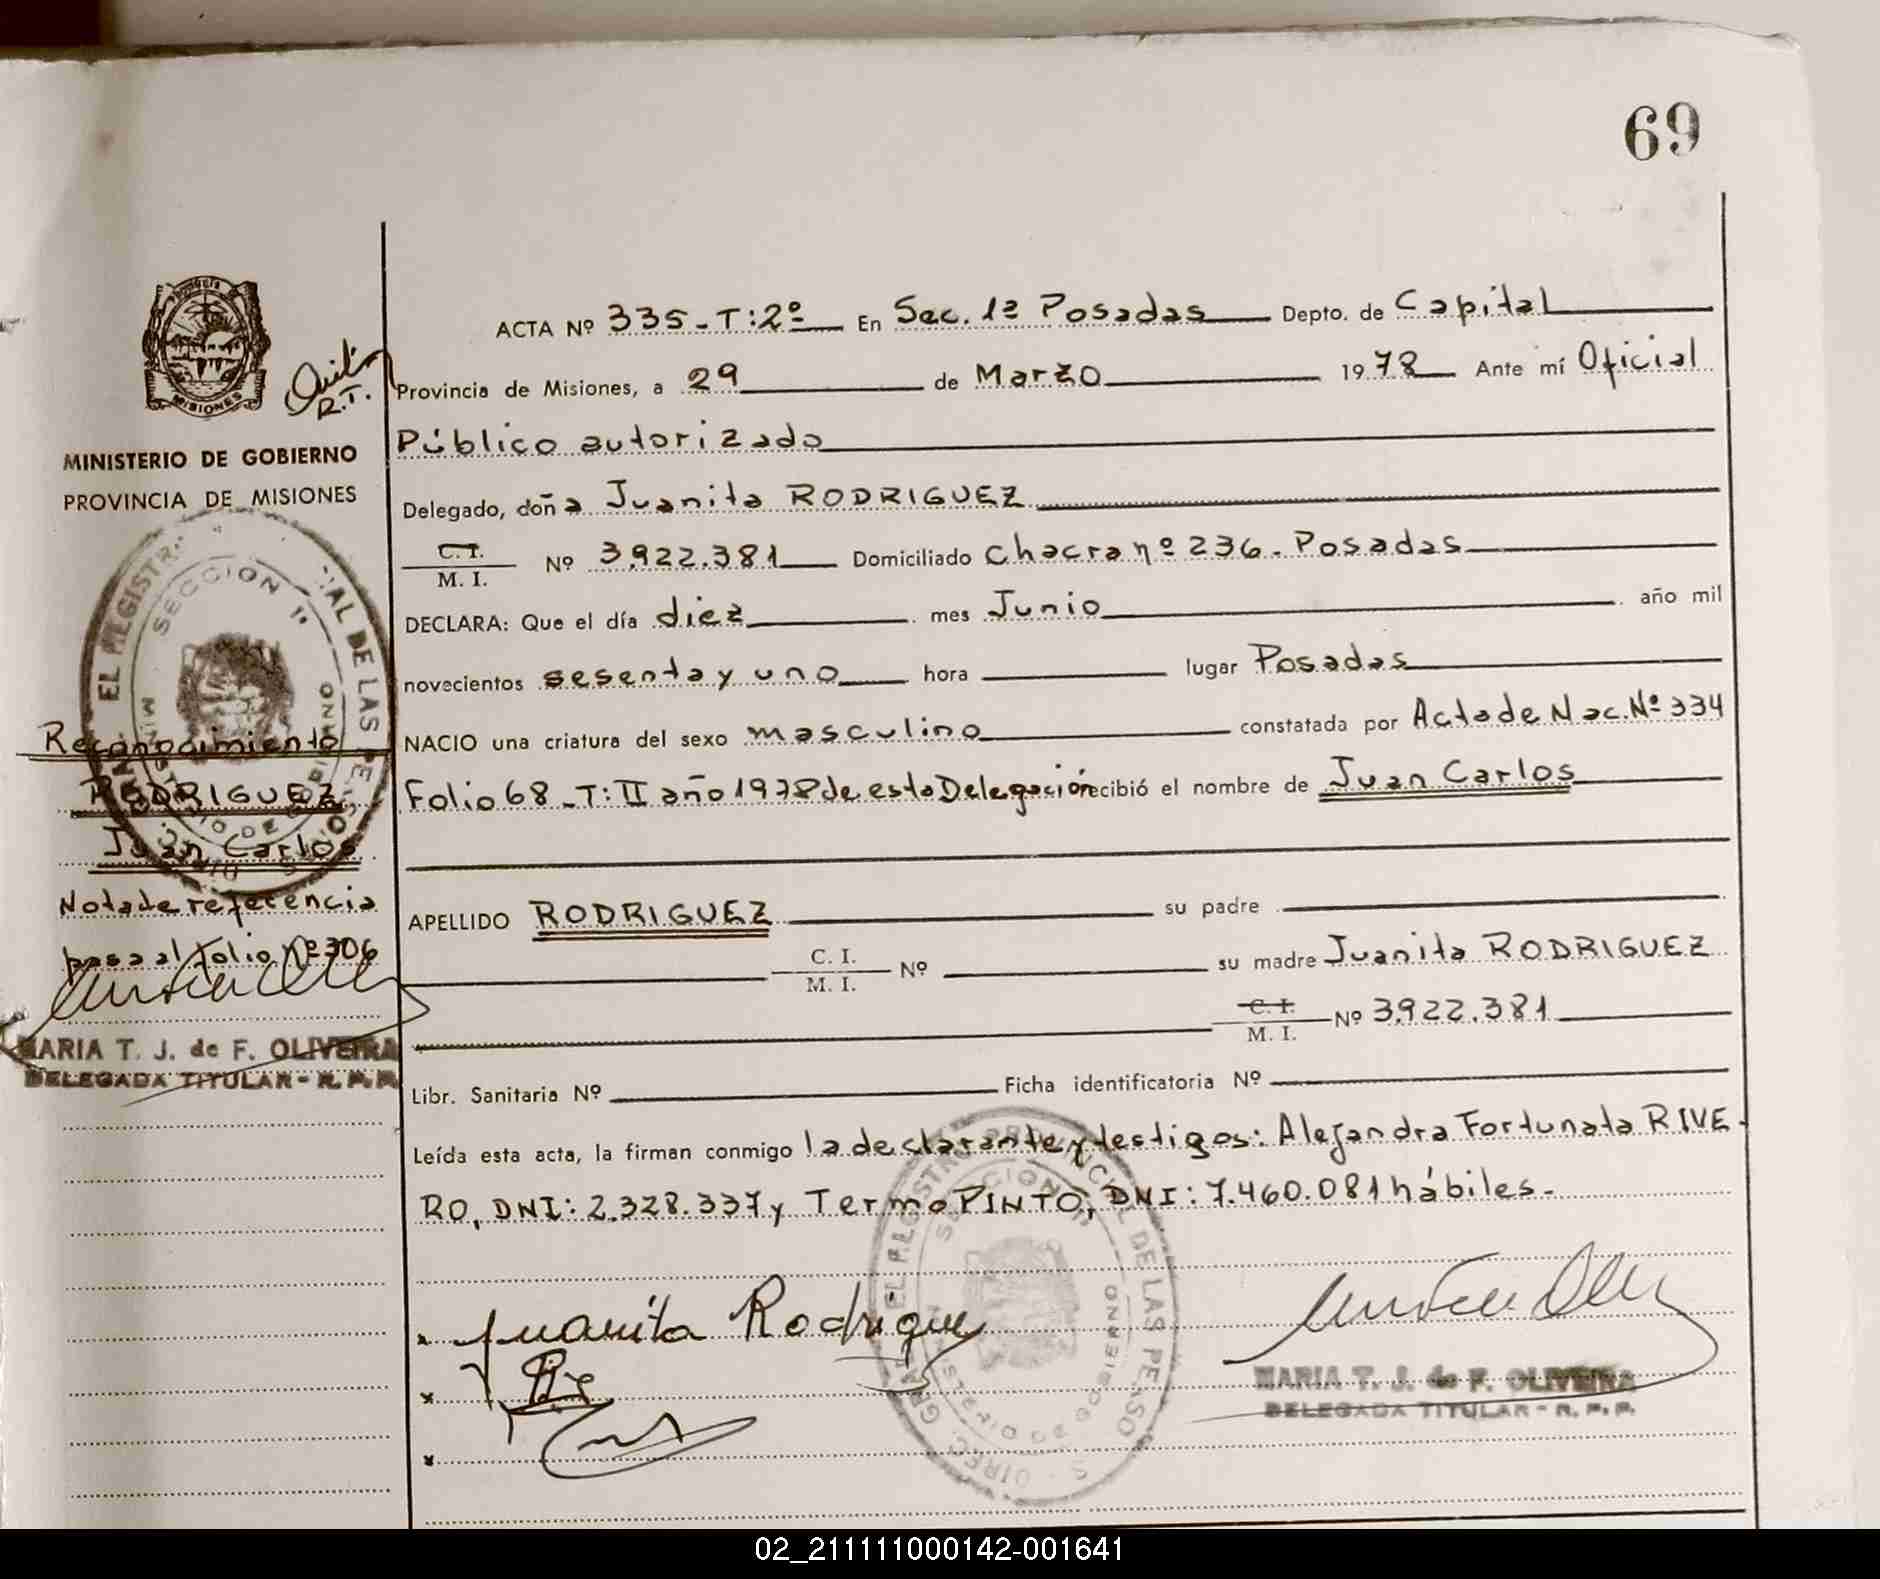 69
ACTA Nº 335-T:2º En Sec. 1ª Posadas Depto. de Capital
Provincia de Misiones, a 29 de Marzo 1978 Ante mí Oficial
Público autorizado
Delegado, doña Juanita RODRIGUEZ
C. I.
M. I. Nº 3.922.381 Domiciliado Chacra nº 236. Posadas
DECLARA: Que el día diez mes Junio año mil
novecientos sesenta y uno hora lugar Posadas
NACIO una criatura del sexo masculino constatada por Acta de Nac. Nº 334
Folio 68-T:II año 1978 de esta Delegación recibió el nombre de Juan Carlos
APELLIDO RODRIGUEZ su padre
C. I.
M. I. Nº su madre Juanita RODRIGUEZ
C. I.
M. I. Nº 3.922.381
Libr. Sanitaria Nº Ficha identificatoria Nº
Leída esta acta, la firman conmigo la declarante y testigos: Alejandra Fortunata RIVE-
RO, DNI: 2.328.337 y Termo PINTO, DNI: 7.460.081 hábiles.-
Juanita Rodriguez
MARIA T. J. de F. OLIVEIRA
DELEGADA TITULAR - R. P. P.
SECCION 1ª
MISIONES
R.T.
MINISTERIO DE GOBIERNO
PROVINCIA DE MISIONES
SECCION 1ª
Reconocimiento
RODRIGUEZ
Juan Carlos
Nota de referencia
pasa al folio nº 306
MARIA T. J. de F. OLIVEIRA
DELEGADA TITULAR - R. P. P.
02_211111000142-001641